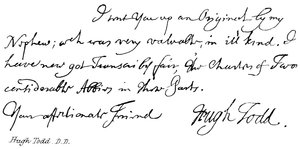 I sent You up an Original by my
Nephew; wch was very valuable, in its kind. I
have now got Transcribd fair, the Charters of Two
considerable Abbies in these Parts.
Your affectionate Friend Hugh Todd.
Hugh Todd D.D.